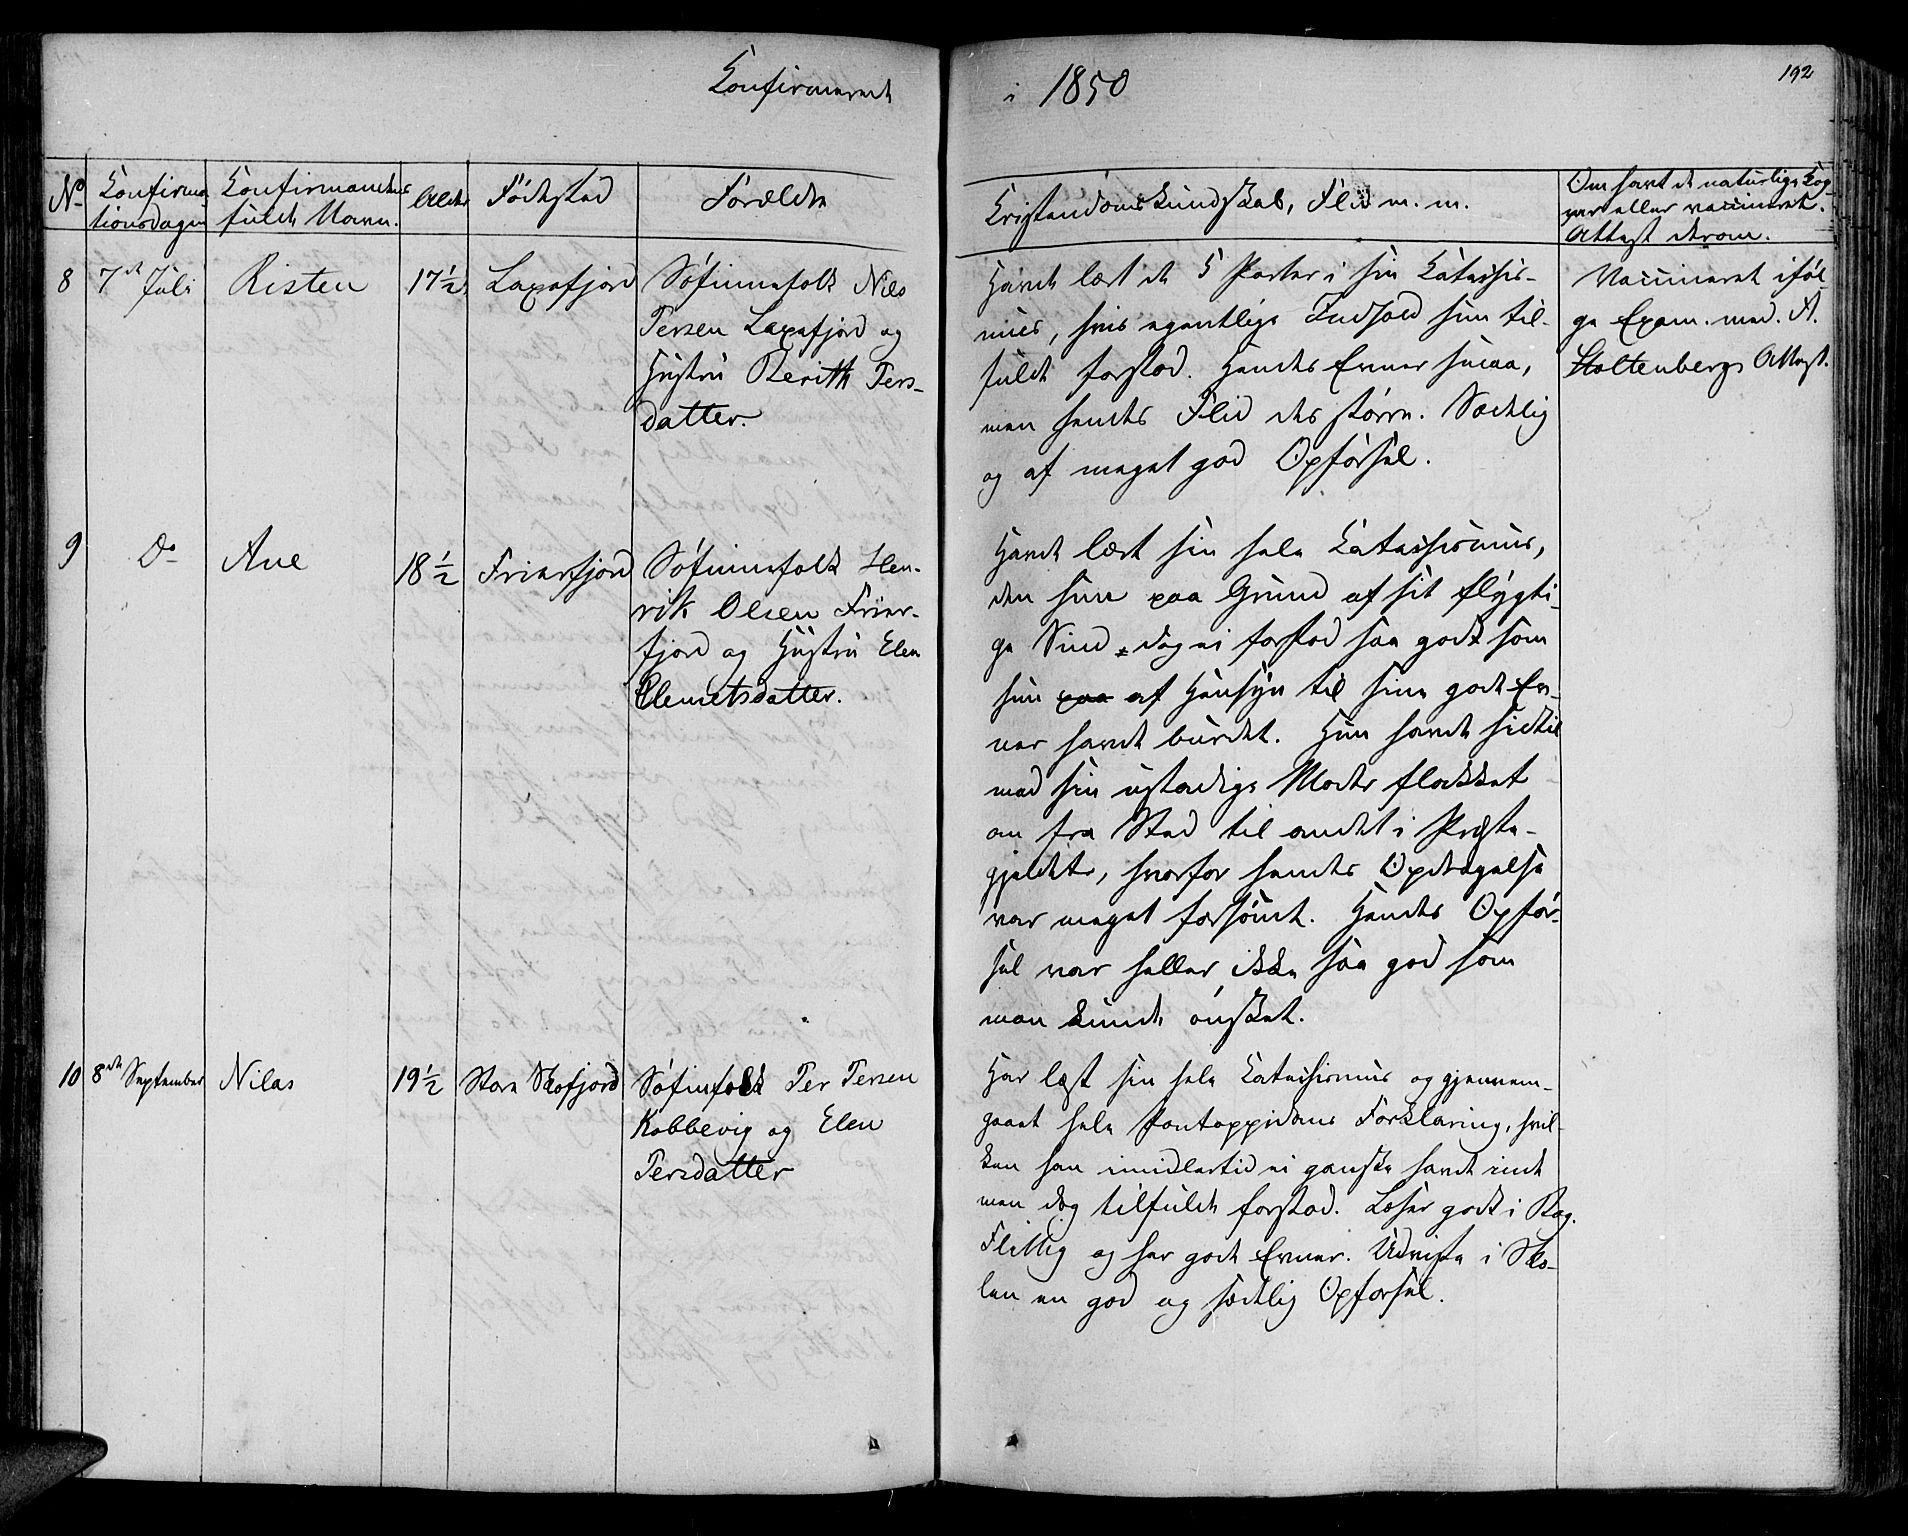 Confirmerede
i 1850
192
No
Confirma
tionsdagen
Confirmandens
fulde Navn.
Alder
Fødested
Forældre
Kristendomskundskab, Flid m. m.
Om havt de naturlige Kop
per eller vaccineret.
Attest derom.
8
7de Juli
Risten
17 1/2
Laxefjord
Søfinnefolk Nils
Persen Laxefjord og
Hustru Berith Pers-
datter.
Havde lært de 5 Parter i sin Katechis-
mus, hvis egentlige Indhold hun til-
fulde forstod. Hendes Evner smaa,
men hendes Flid des større. Sædelig
og af meget god Opførsel.
Vaccineret iføl-
ge Exam. med. A.
Stoltenbergs Attest.
9
Do
Ane
18 1/2
Friarfjord
Søfinnefolk Hen-
rik Olsen Friar-
fjord og Hustru Elen
Clemetsdatter.
Havde lært sin hele Katechismus,
den hun paa Grund af sit flygti-
ge Sind dog ei forstod saa godt som
hun paa af Hensyn til sine gode Ev-
ner havde burdet. Hun havde hidtil
med sin ustadige Moder flakket
om fra Sted til andet i Præste-
gjeldet, hvorfor hendes Opdragelse
var meget forsømt. Hendes Opfør-
sel var heller ikke saa god som
man kunde ønsket.
10
8de September
Nilas
19 1/2
Store Skofjord
Søfinfolk Per Persen
Kobbevig og Elen
Persdatter
Har læst sin hele Katechismus og gjennem-
gaaet hele Pontoppidans Forklaring, hvil-
ken han imidlertid ei ganske havde inde
men dog tilfulde forstod. Læser godt i Bog.
Flittig og har gode Evner. Udviste i Sko-
len en god og sædelig Opførsel.